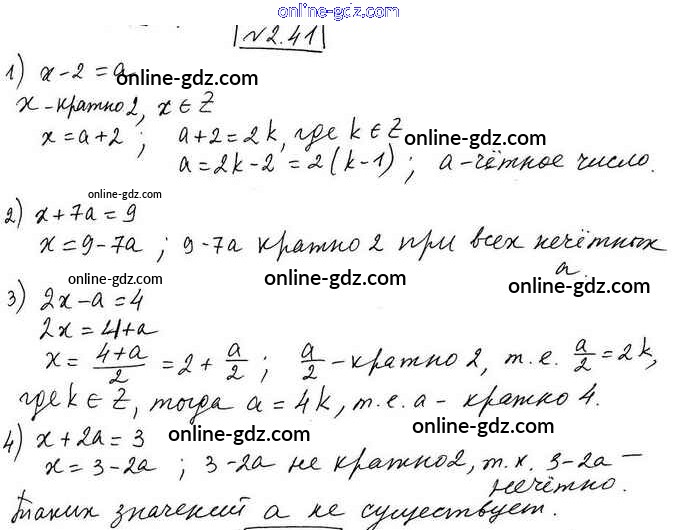 online-gdz.com
№2.41
1) x-2=a online-gdz.com
x-кратно 2, x∈Z
x=a+2; a+2=2k, где k∈Z online-gdz.com
a=2k-2=2(k-1); a-чётное число.
online-gdz.com
2) x+7a=9
x=9-7a; 9-7a кратно 2 при всех нечётных a.
online-gdz.com online-gdz.com online-gdz.com
3) 2x-a=4
2x=4+a
x=(4+a)/2=2+a/2; a/2-кратно 2, т.е. a/2=2k,
где k∈Z, тогда a=4k, т.е. a-кратно 4.
4) x+2a=3 online-gdz.com online-gdz.com
x=3-2a; 3-2a не кратно 2, т.к. 3-2a — нечётно.
Таких значений a не существует.